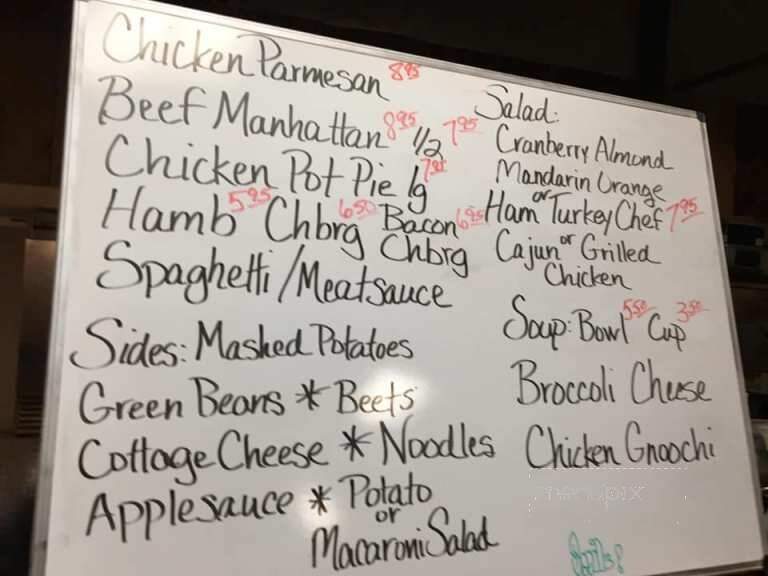 Chicken Parmesan 8.95
Beef Manhattan 8.95 1/2 7.95
Chicken Pot Pie lg 7.95
Hamb 5.95 Chbrg 6.50 Bacon Chbrg 6.95
Spaghetti/Meatsauce
Sides: Mashed Potatoes
Green Beans * Beets
Cottage Cheese * Noodles
Applesauce * Potato
or
Macaroni Salad
Salad:
Cranberry Almond
Mandarin Orange
Ham or Turkey Chef 7.95
Cajun or Grilled
Chicken
Soup: Bowl 5.50 Cup 3.50
Broccoli Cheese
Chicken Gnocchi
menupix